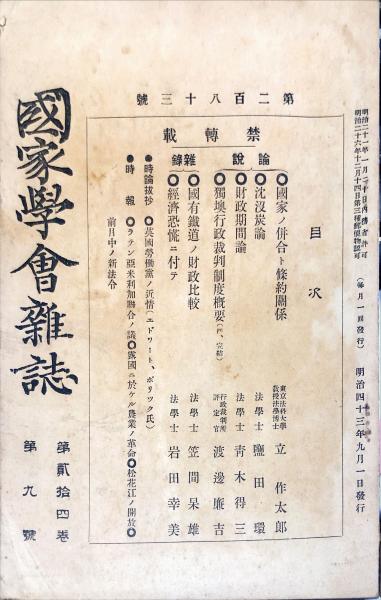 明治二十一年一月二十日內務省許可
明治二十六年十二月十四日第三種郵便物認可
（每月一回發行）
明治四十三年九月一日發行
第二百八十三號
禁轉載
目次
論說
●國家ノ併合ト條約關係
東京法科大學教授法學博士 立作太郎
●沈沒炭論
法學士 鹽田環
●財政期間論
法學士 靑木得三
●獨墺行政裁判制度概要（四、完結）
行政裁判所評定官 渡邊廉吉
雜錄
●國有鐵道ノ財政比較
法學士 笠間杲雄
●經濟恐慌ニ付テ
法學士 岩田幸美
●時論拔抄
●英國勞働黨ノ近情（エドワート、ポリツク氏）
●時報
●ラテン亞米利加聯合ノ議●露國ニ於ケル農業ノ革命●松花江ノ開放●
前月中ノ新法令
國家學會雜誌
第貳拾四卷
第九號